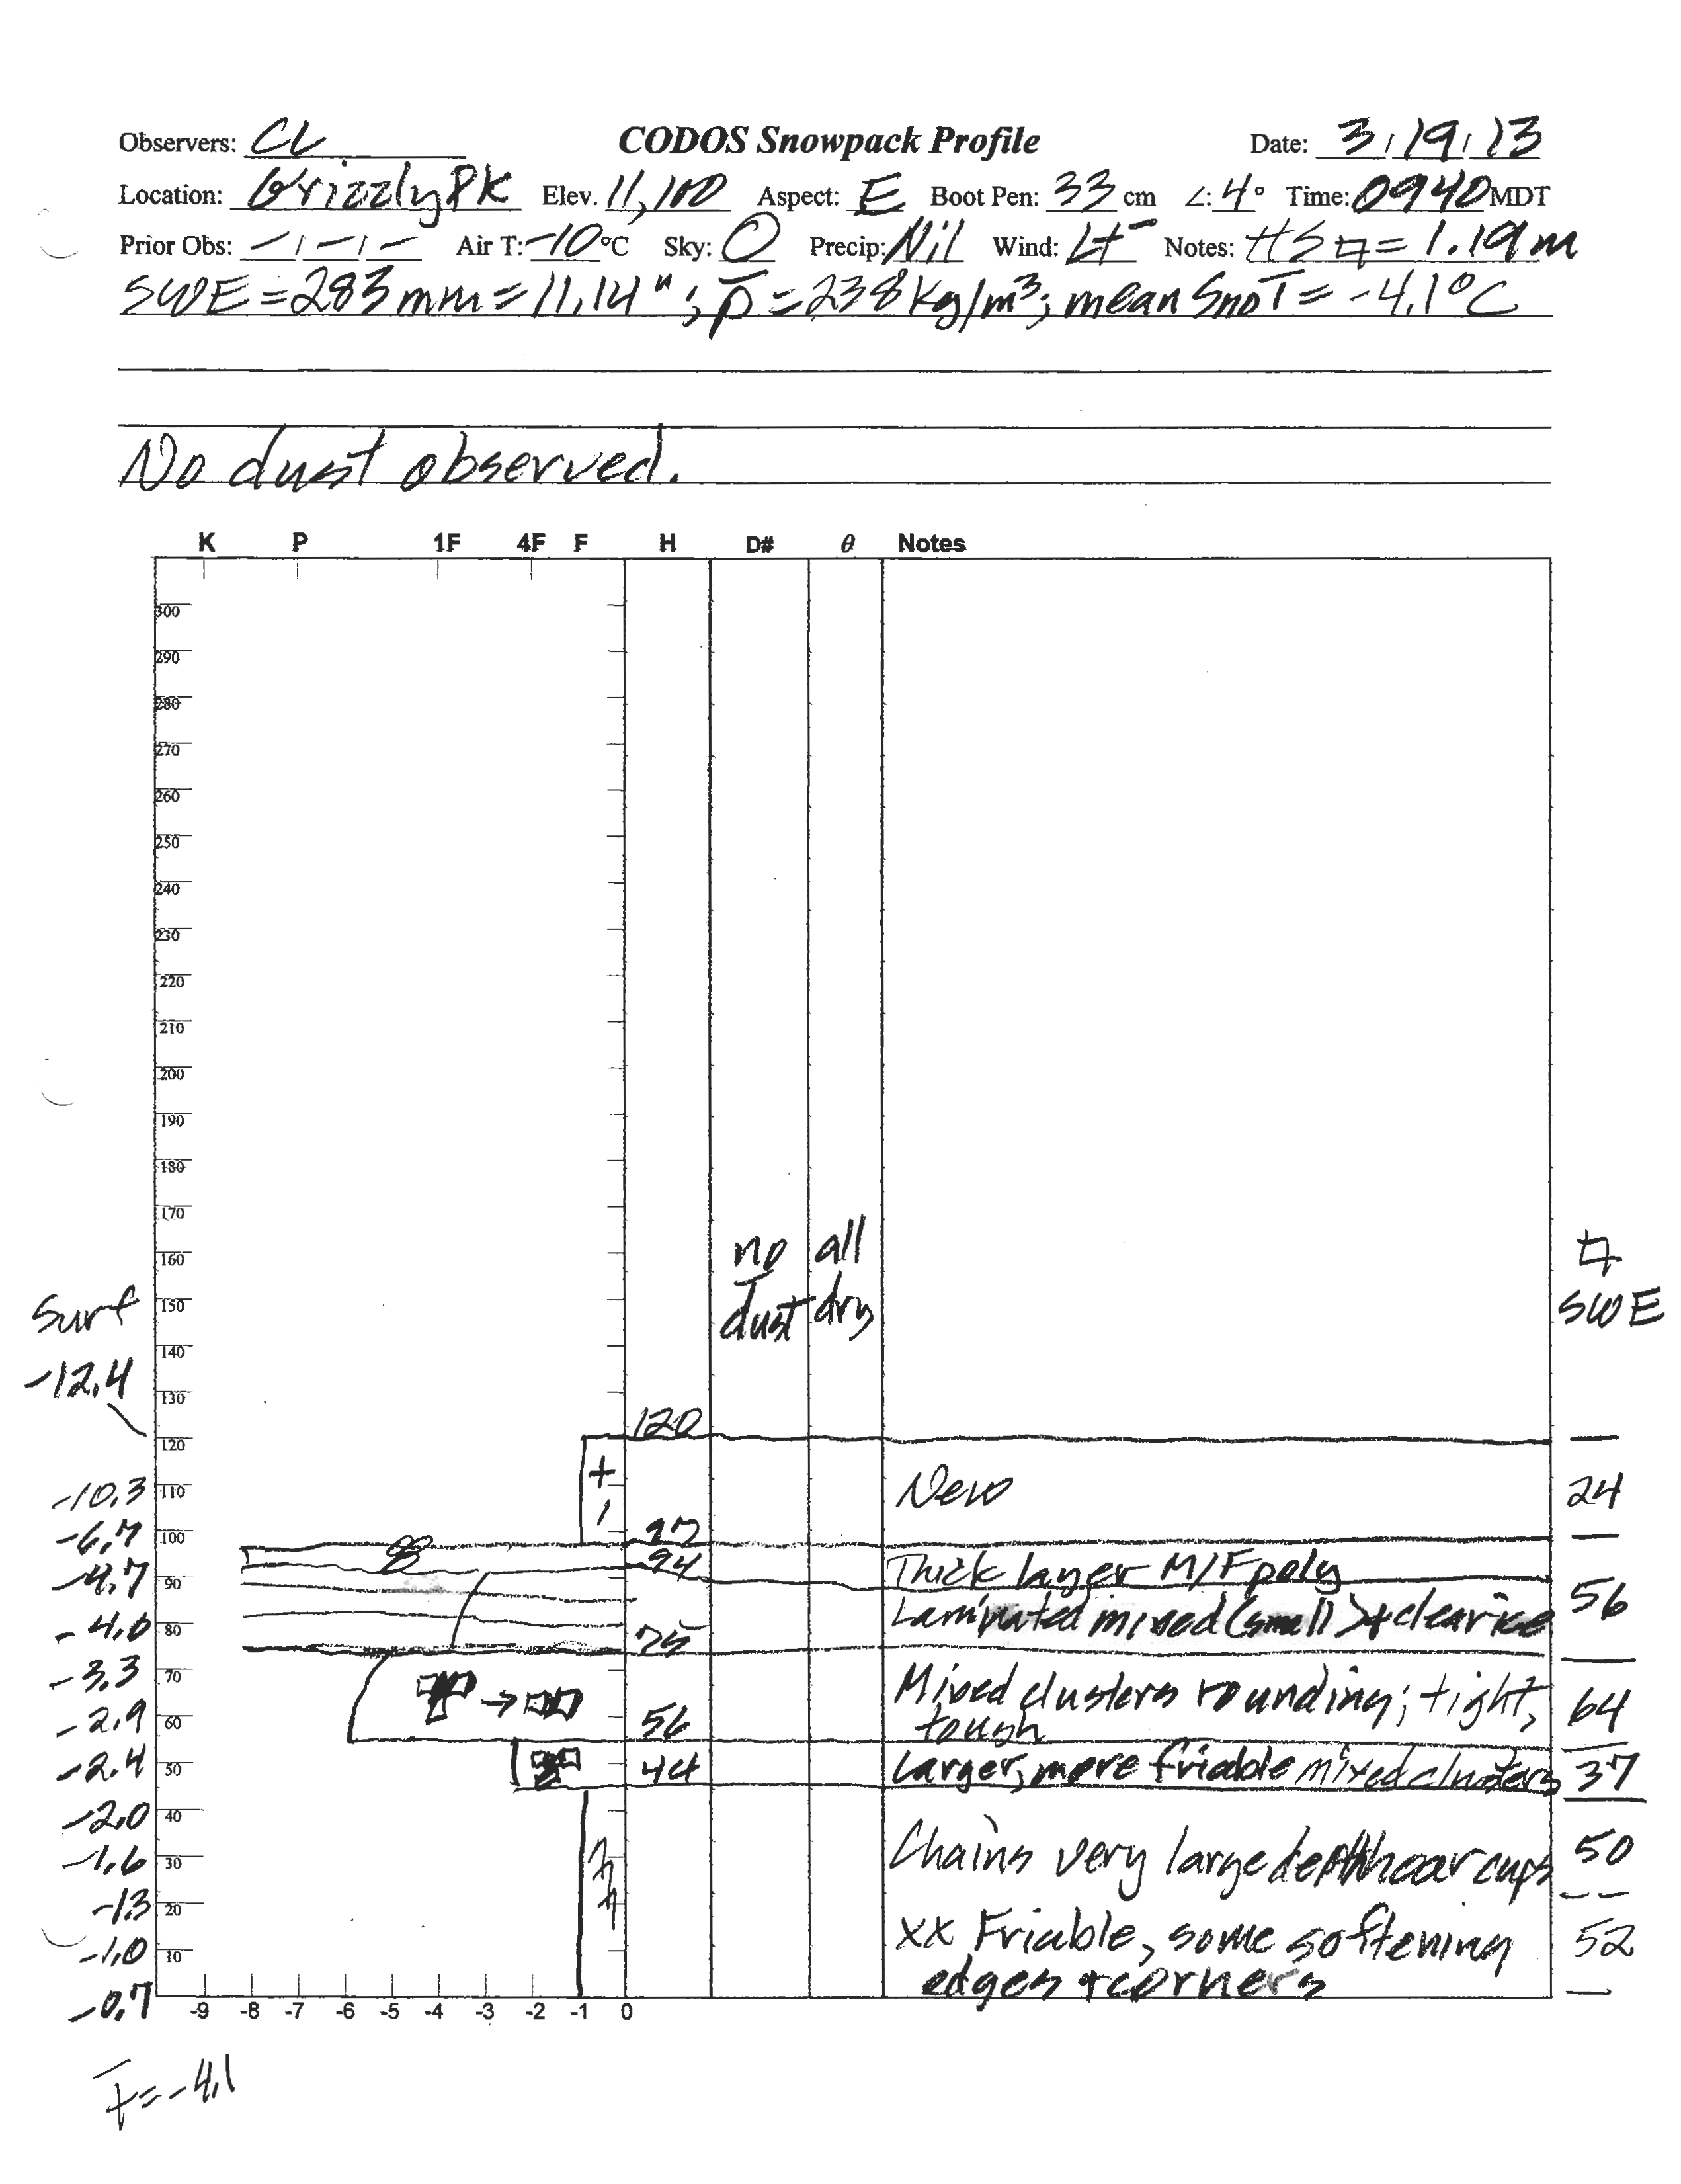 Observers: CL CODOS Snowpack Profile Date: 3/19/13
Location: Grizzly PK Elev. 11,100 Aspect: E Boot Pen: 33 cm ∠: 4° Time: 0940 MDT
Prior Obs: -/-/- Air T: -10 °C Sky: O Precip: Nil Wind: Lt- Notes: HS = 1.19m
SWE = 283mm = 11.14"; ρ̅ = 238 kg/m³; mean Sno T = -4.1°C
No dust observed.
K P 1F 4F F H D# θ Notes
300
290
280
270
260
250
240
230
220
210
200
190
180
170
160 no all
Surf 150 dust dry SWE
140
-12.4 130
120 120
-10.3 110 + / New 24
-6.7 100 97
94 Thick layer M/F poly
-4.7 90 56
-4.0 80 Laminated mixed (small) + clear ice
75
-3.3 70 Mixed clusters rounding; tight, 64
-2.9 60 56 tough
-2.4 50 44 Larger, more friable mixed clusters 37
-2.0 40
-1.6 30 Chains very large depth hoar cups 50
-1.3 20
-1.0 10 xx Friable, some softening 52
-0.7 edges + corners
-9 -8 -7 -6 -5 -4 -3 -2 -1 0
T̅ = -4.1